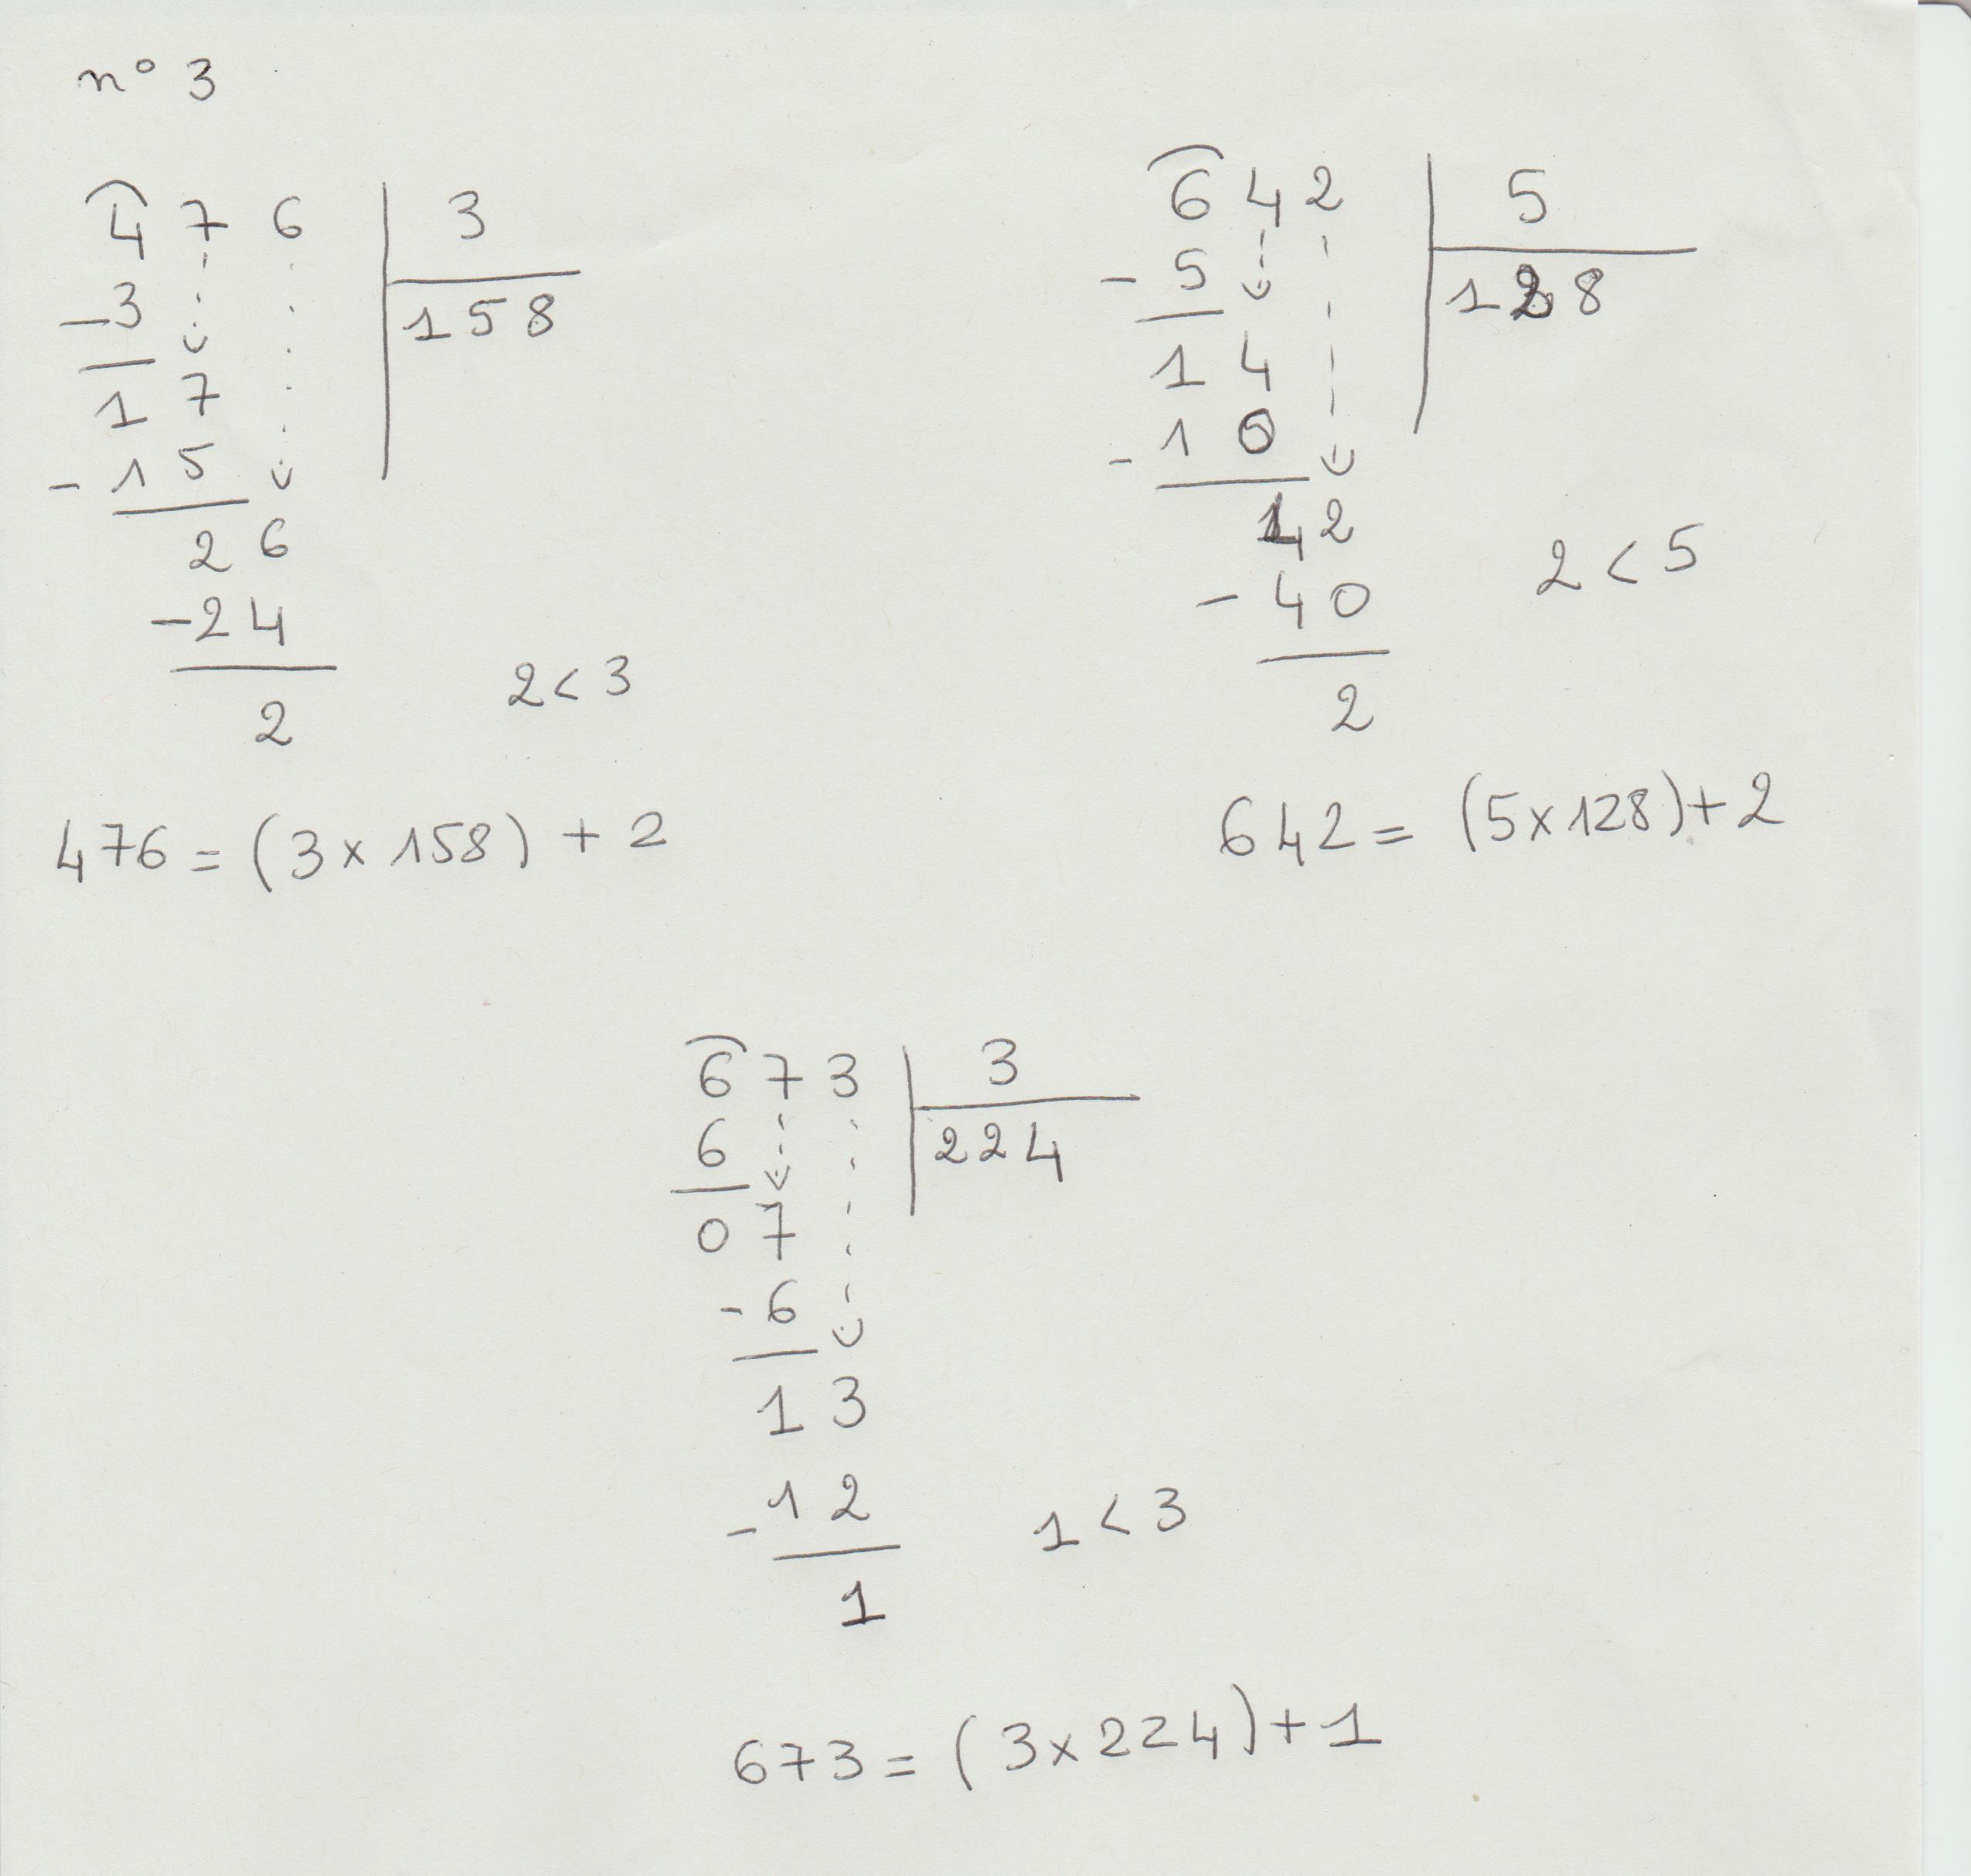 n° 3
4 7 6 | 3
-3 | 158
1 7
- 1 5
2 6
-2 4
2
2 < 3
476 = (3 x 158) + 2
6 4 2 | 5
- 5 | 128
1 4
- 1 0
42
- 4 0
2
2 < 5
642 = (5x128)+2
6 7 3 | 3
6 | 224
0 7
- 6
1 3
- 1 2
1
1 < 3
673 = (3x224)+1